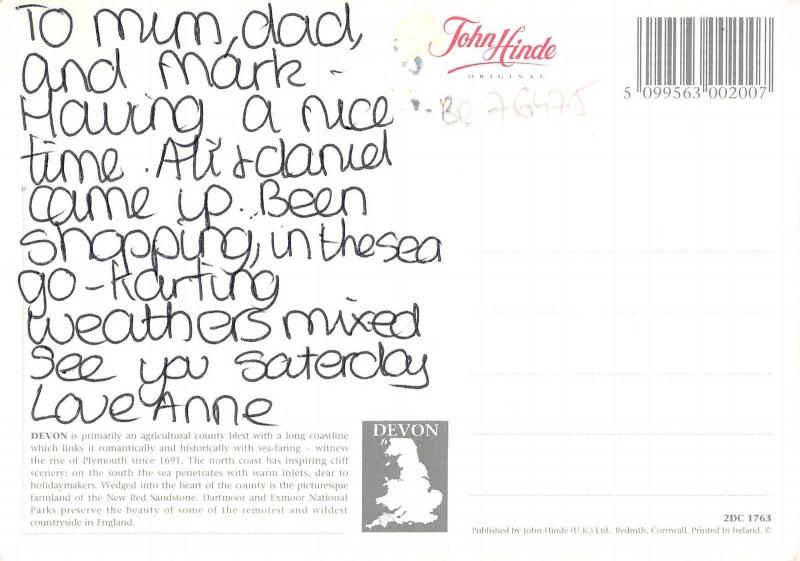 To mum, dad,
and Mark -
Having a nice
time. Ali & daniel
came up. Been
shopping, in the sea
go-karting
weathers mixed
See you saterday
Love Anne
John Hinde
ORIGINAL
5 099563 002007
BR 76475
DEVON is primarily an agricultural county blest with a long coastline
which links it romantically and historically with sea-faring – witness
the rise of Plymouth since 1691. The north coast has inspiring cliff
scenery; on the south the sea penetrates with warm inlets, dear to
holidaymakers. Wedged into the heart of the county is the picturesque
farmland of the New Red Sandstone. Dartmoor and Exmoor National
Parks preserve the beauty of some of the remotest and wildest
countryside in England.
DEVON
2DC 1763
Published by John Hinde (U.K.) Ltd., Redruth, Cornwall. Printed In Ireland. ©